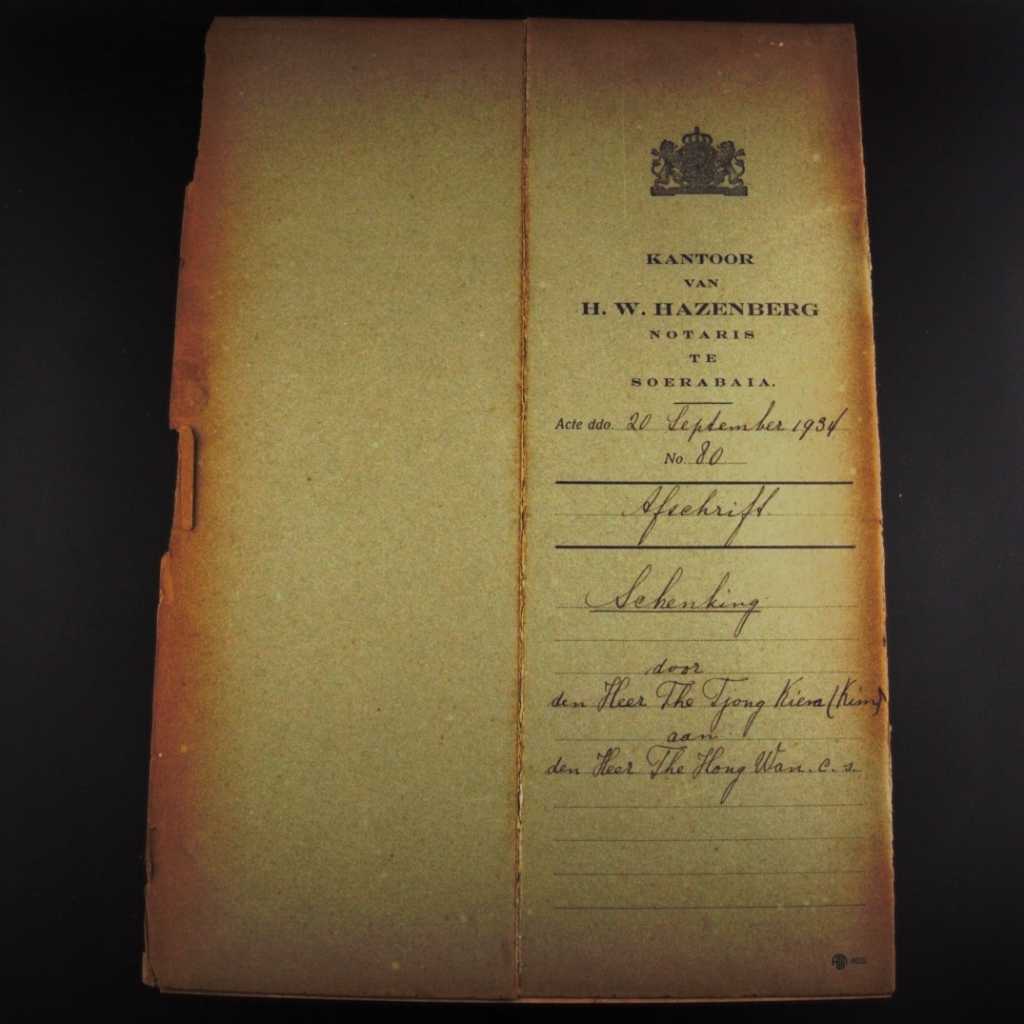 KANTOOR
VAN
H. W. HAZENBERG
NOTARIS
TE
SOERABAIA.
Acte ddo. 20 September 1934
No. 80
Afschrift
Schenking
door
den Heer The Tjong Kiem (Kim)
aan
den Heer The Hong Wan. c. s.